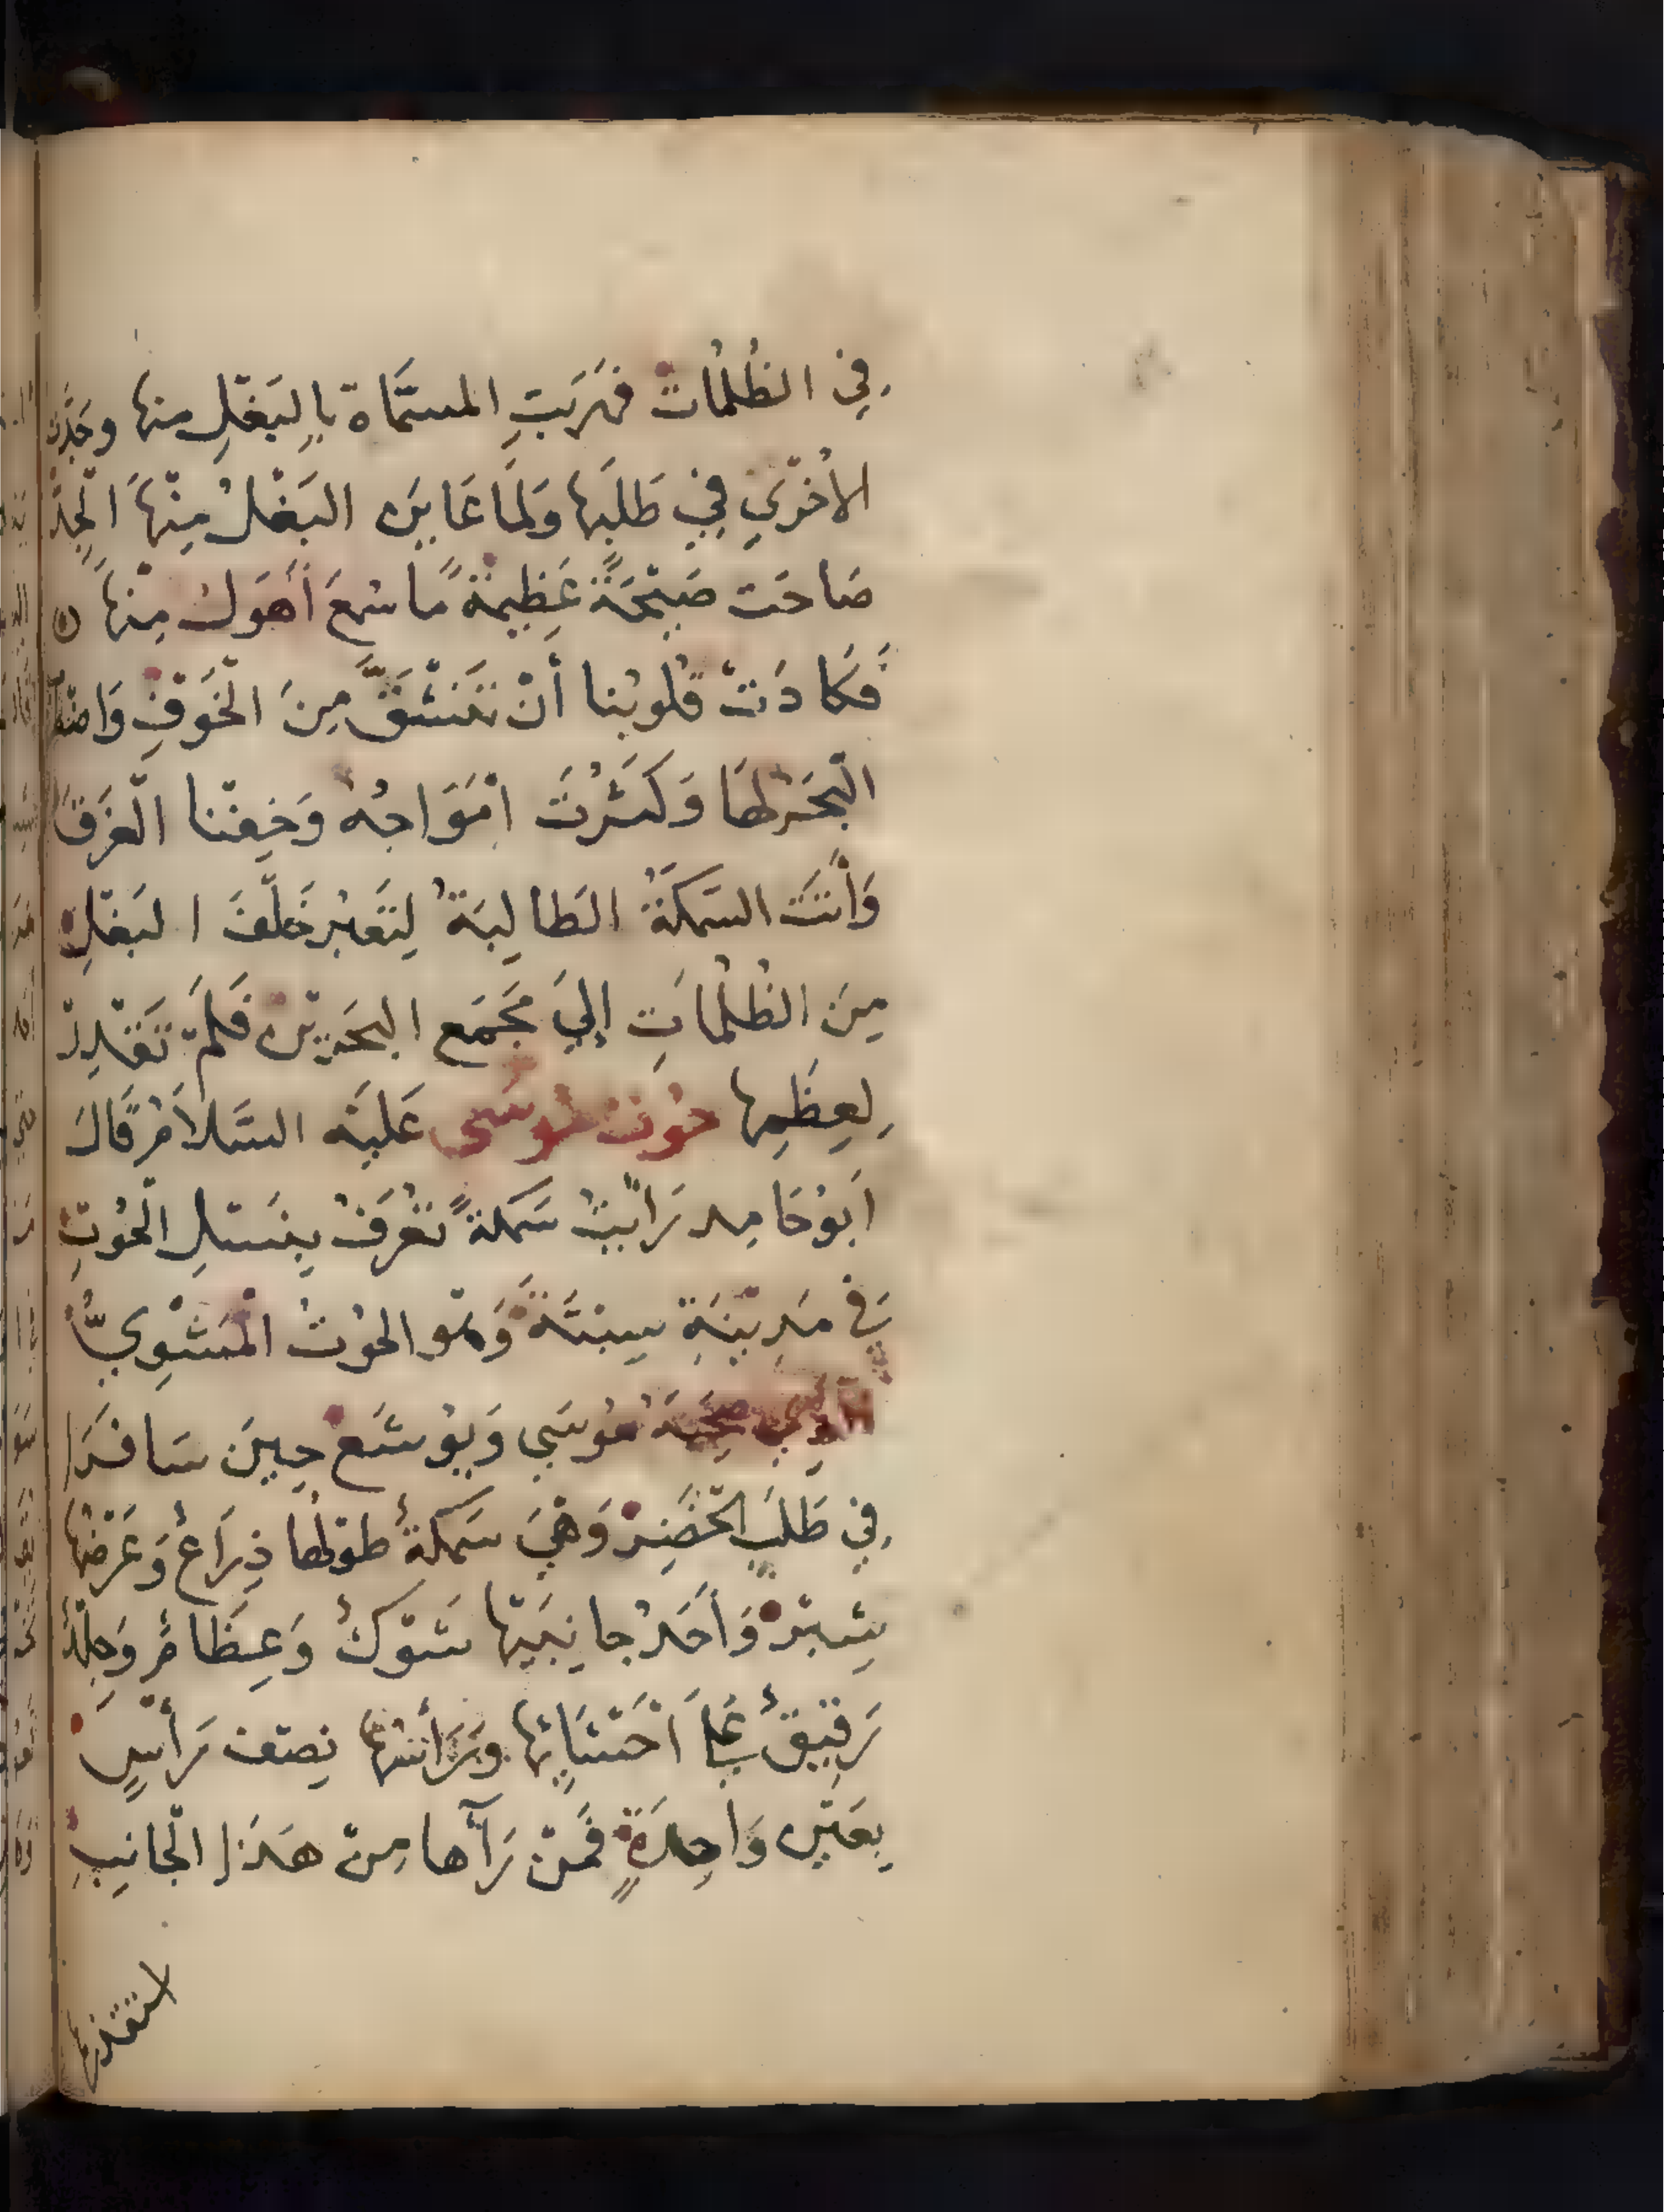 في الظُلُمات فهَرَبَتِ المسمَّاة بِالبَغْلِ منها وجَدَّت
الاُخْرَي فِي طَلَبِها وَلما عَايَن البَغْلُ مِنْهَا الجِدَّ
صَاحَت صَيْحَةً عَظِيمَةً ما سُمِعَ أَهوَلُ مِنْهَا
فَكَادَتْ قُلوبُنا أَنْ تَنْشَقَّ مِنَ الْخَوْفِ وَاضْطَرَبَ
الْبَحَرُ لهَا وَكَثُرَتَ امْوَاجُه وَخِفْنا الْغَرَقَ
وَأَتَت السَّمَكَةُ الطَالِبَةُ لِتَعْبُر خَلْفَ البَغْلِ
مِنَ الظُلُمَاتِ إِلَي مَجْمَع البَحَرَيْن فَلَمْ تَقْدِرْ
لِعِظَمِها حُوت مُوسَى عَلَيْه السَّلَامُ قَالَ
اَبُوحَامِد رَأيْتُ سَمَكَةً تُعْرَفُ بِنَسْلِ الْحُوتِ
فِي مَدِيْنَةِ سِبْتَةَ وَهُو الحُوْتُ الْمَشْوِيُّ
الَّذِي صَحِبَهُ مُوسَي وَيُوشَع حِينَ سَافَرَا
فِي طَلَبِ الْخَضِرْ وَهْيَ سَمَكَةٌ طولُها ذِرَاعٌ وَعَرْضُها
شِبْرْ وَأَحَدُ جانِبَيْها شَوْكٌ وَعِظَامٌ وَجِلْدٌ
رَقِيْقٌ عَلَي اَحْشَائِها وَرَأسُها نِصْف رَأْسٍ
بِعَيْن وَاحِدَةٍ فَمَنْ رَآها مِنْ هَذَا الْجَانِبِ
استقذرها